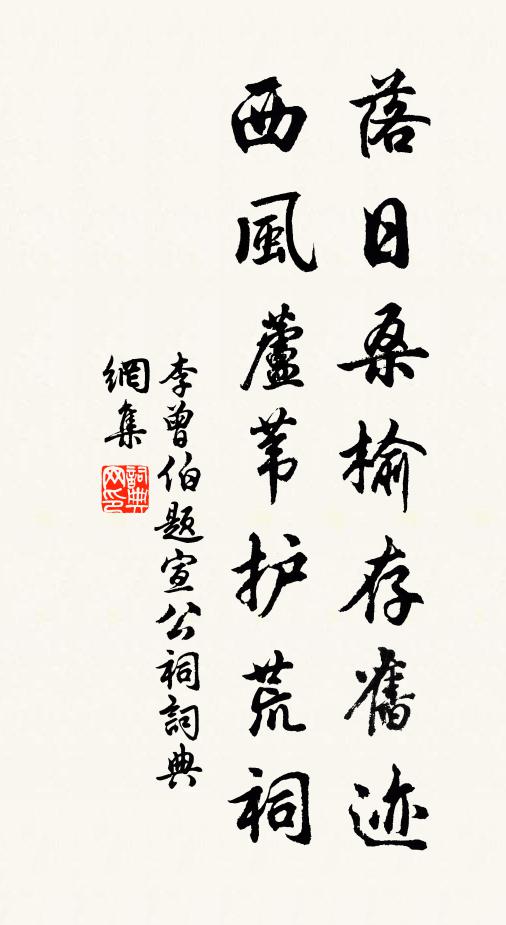 落日桑榆存舊迹
西風蘆苇护荒祠
李曾伯题宣公祠詞典
網集
詞典网印